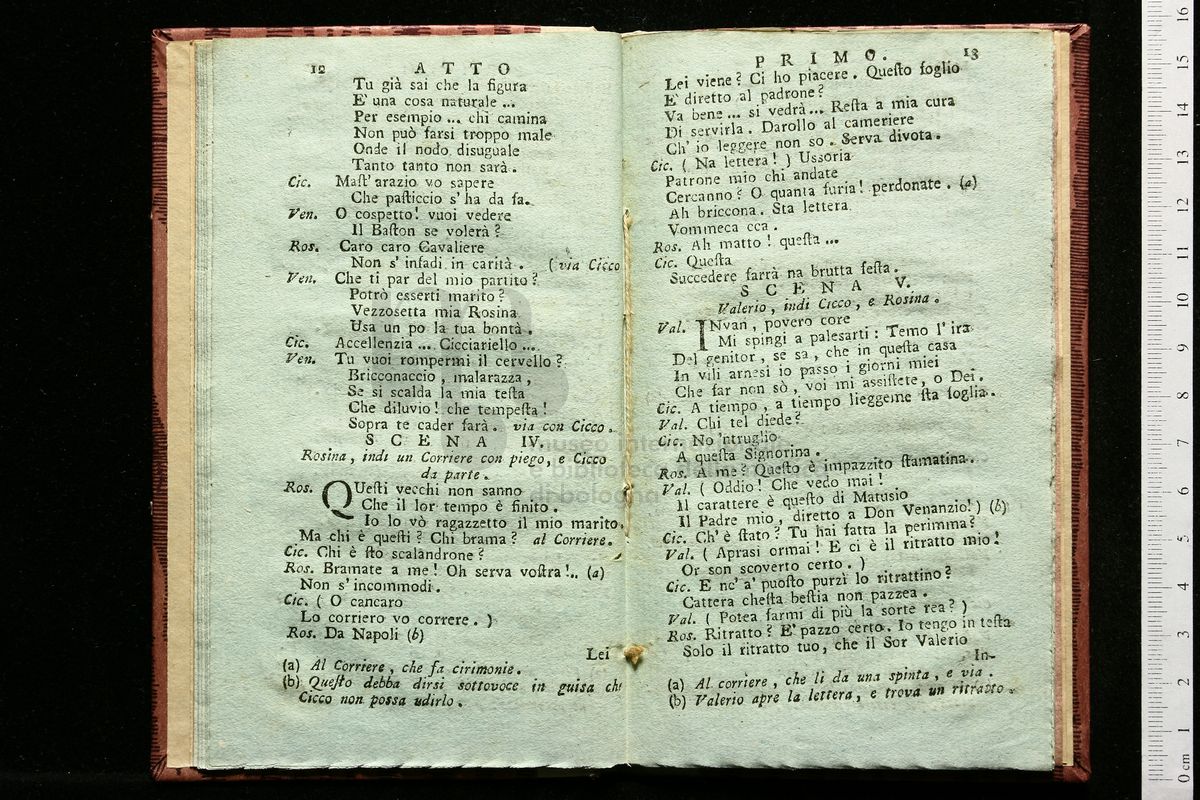 12 ATTO
Tu già sai che la figura
E' una cosa naturale ...
Per esempio ... chi camina
Non può farsi troppo male
Onde il nodo disuguale
Tanto tanto non sarà.
Cic. Maſt' arazio vo sapere
Che paſticcio s' ha da fa.
Ven. O cospetto! vuoi vedere
Il Baſton se volerà?
Ros. Caro caro Cavaliere
Non s' infadi in carità. (via Cicco
Ven. Che ti par del mio partito?
Potrò esserti marito?
Vezzosetta mia Rosina
Usa un po la tua bontà.
Cic. Accellenzia ... Cicciariello ...
Ven. Tu vuoi rompermi il cervello?
Bricconaccio, malarazza,
Se si scalda la mia teſta
Che diluvio! che tempeſta!
Sopra te cader farà. via con Cicco.
SCENA IV.
Rosina, indi un Corriere con piego, e Cicco
da parte.
Ros. QUeſti vecchi non sanno
Che il lor tempo è finito.
Io lo vò ragazzetto il mio marito.
Ma chi è queſti? Chi brama? al Corriere.
Cic. Chi è ſto scalandrone?
Ros. Bramate a me! Oh serva voſtra!.. (a)
Non s' incommodi.
Cic. (O cancaro
Lo corriero vo correre.)
Ros. Da Napoli (b)
Lei
(a) Al Corriere, che fa cirimonie.
(b) Queſto debba dirsi sottovoce in guisa che
Cicco non possa udirlo.
PRIMO. 13
Lei viene? Ci ho piacere. Queſto foglio
E' diretto al padrone?
Va bene ... si vedrà ... Reſta a mia cura
Di servirla. Darollo al cameriere
Ch' io leggere non so. Serva divota.
Cic. (Na lettera!) Ussoria
Patrone mio chi andate
Cercanno? O quanta furia! perdonate. (a)
Ah briccona. Sta lettera
Vommeca cca.
Ros. Ah matto! queſta ...
Cic. Queſta
Succedere farrà na brutta feſta.
SCENA V.
Valerio, indi Cicco, e Rosina.
Val. INvan, povero core
Mi spingi a palesarti: Temo l' ira
Del genitor, se sa, che in queſta casa
In vili arnesi io passo i giorni miei
Che far non sò, voi mi assiſtete, o Dei.
Cic. A tiempo, a tiempo lieggeme ſta foglia.
Val. Chi tel diede?
Cic. No 'ntruglio
A queſta Signorina.
Ros. A me? Queſto è impazzito ſtamatina.
Val. (Oddio! Che vedo mai!
Il carattere è queſto di Matusio
Il Padre mio, diretto a Don Venanzio!) (b)
Cic. Ch' è ſtato? Tu hai fatta la perimma?
Val. (Aprasi ormai! E ci è il ritratto mio!
Or son scoverto certo.)
Cic. E nc' a' puoſto purzì lo ritrattino?
Cattera cheſta beſtia non pazzea.
Val. (Potea farmi di più la sorte rea?)
Ros. Ritratto? E' pazzo certo. Io tengo in teſta
Solo il ritratto tuo, che il Sor Valerio
In-
(a) Al corriere, che li da una spinta, e via.
(b) Valerio apre la lettera, e trova un ritratto.